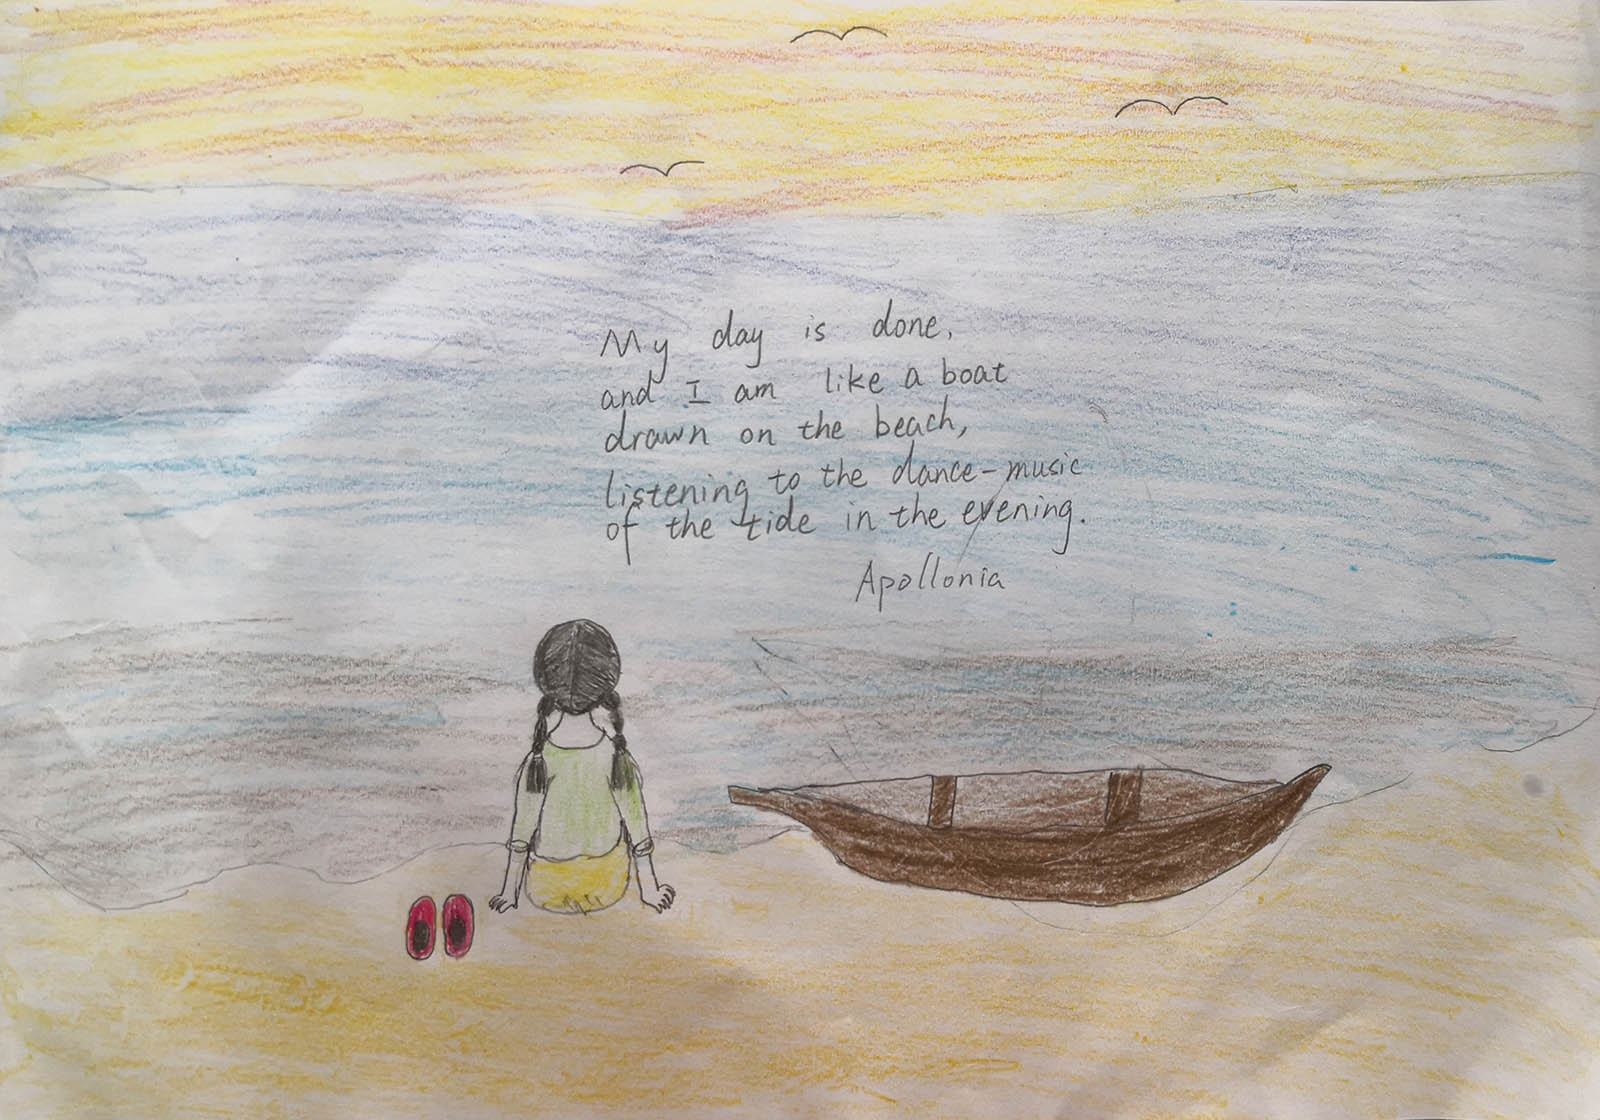 My day is done,
and I am like a boat
drawn on the beach,
listening to the dance-music
of the tide in the evening.
Apollonia